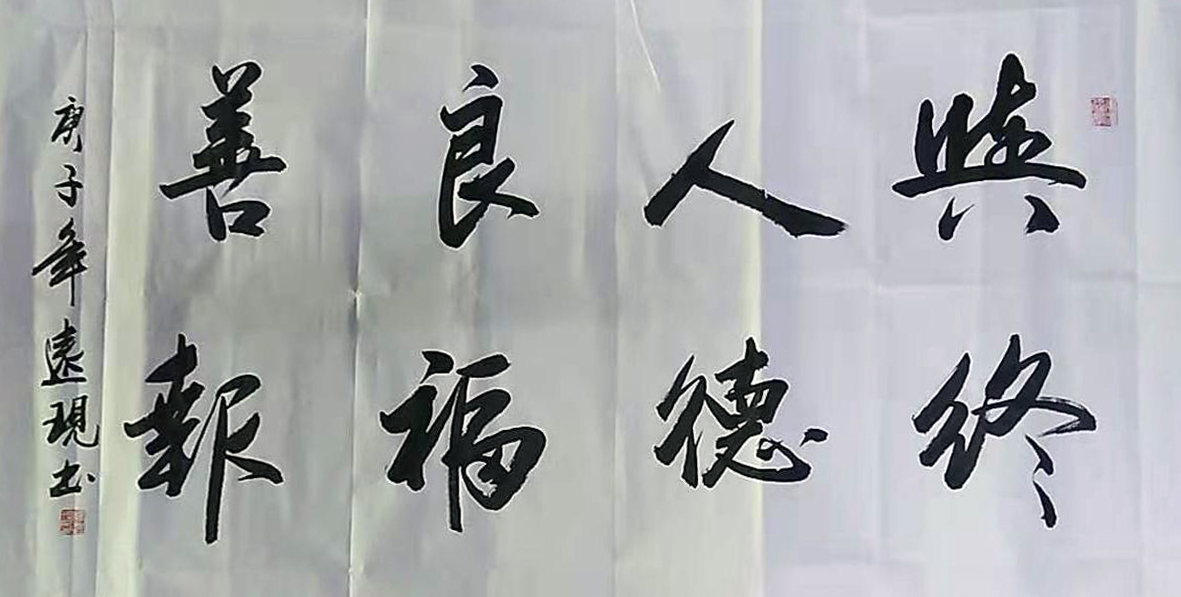 與人良善
終德福報
庚子年遠現书